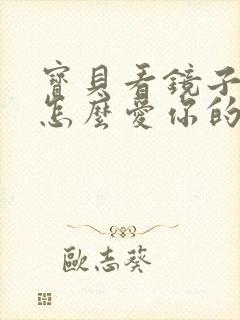 寶貝看鏡子
怎麼愛你的
歐志葵